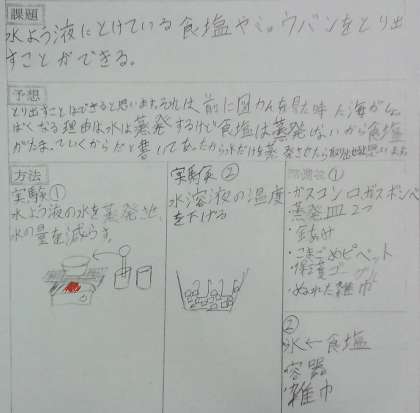 課題
水よう液にとけている食塩やミョウバンをとり出
すことができる。
予想
とり出すことはできると思います。それは、前に図かんを見た時、海がしょ
ぱくなる理由は水は蒸発するけど食塩は蒸発しないから食塩
がたまっていくからだと書いてあったから水だけを蒸発させたら取り出せると思います。
方法
実験①
水よう液の水を蒸発させ、
水の量を減らす。
実験②
水溶液の温度
を下げる
①
・ガスコンロ ガスボンベ
・蒸発皿2つ
・金あみ
・こまごめピペット
・保護ゴーグル
・ぬれた雑巾
②
氷←食塩
容器
雑巾